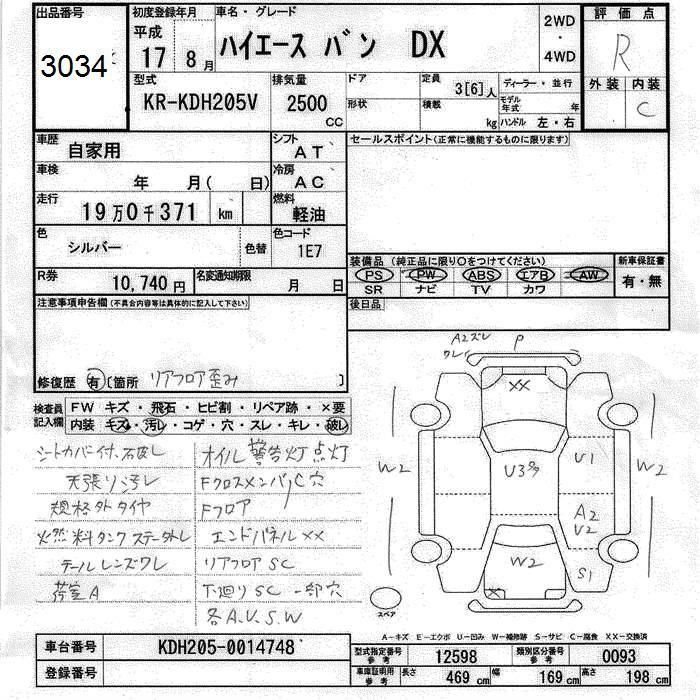 出品番号 初度登録年月 車名・グレード 2WD・4WD 評価点
3034 平成 17 8月 ハイエース バン DX R
型式 排気量 ドア 定員 3[6]人 ディーラー・並行 外装 内装
KR-KDH205V 2500 CC 形状 積載 kg モデル年式 年 ハンドル 左・右 C
車歴 自家用 シフト AT セールスポイント(正常に機能するものに限ります)
車検 年 月( 日) 冷房 AC
走行 19万0千371 km 燃料 軽油
色 シルバー 色替 色コード 1E7
装備品(純正品に限り○をつけてください) 新車保証書
PS PW ABS エアB AW 有・無
SR ナビ TV カワ
R券 10,740円 名変通知期限 月 日
後日品
注意事項申告欄(不具合内容等は具体的に記入して下さい)
修復歴 有 [箇所 リアフロア歪み ]
検査員記入欄 FW キズ・飛石・ヒビ割・リペア跡・×要
内装 キズ・汚レ・コゲ・穴・スレ・キレ・破レ
シートカバー付、破レ オイル警告灯点灯
天張リ汚レ FクロスメンバC穴
規格外タイヤ Fフロア
燃料タンクステー外レ エンドパネルXX
テールレンズワレ リアフロアSC
荷室A 下廻りSC 一部穴
各A.U.S.W
A2ズレ P
ワレ
XX
W2 U3 U1 W2
A2
U2
W2 S1
X
スペア
A-キズ E-エクボ U-凹み W-補修跡 S-サビ C-腐食 XX-交換済
車台番号 KDH205-0014748
型式指定番号 参考 12598 類別区分番号 参考 0093
登録番号
車庫証明用 参考 長さ 469 cm 幅 169 cm 高さ 198 cm